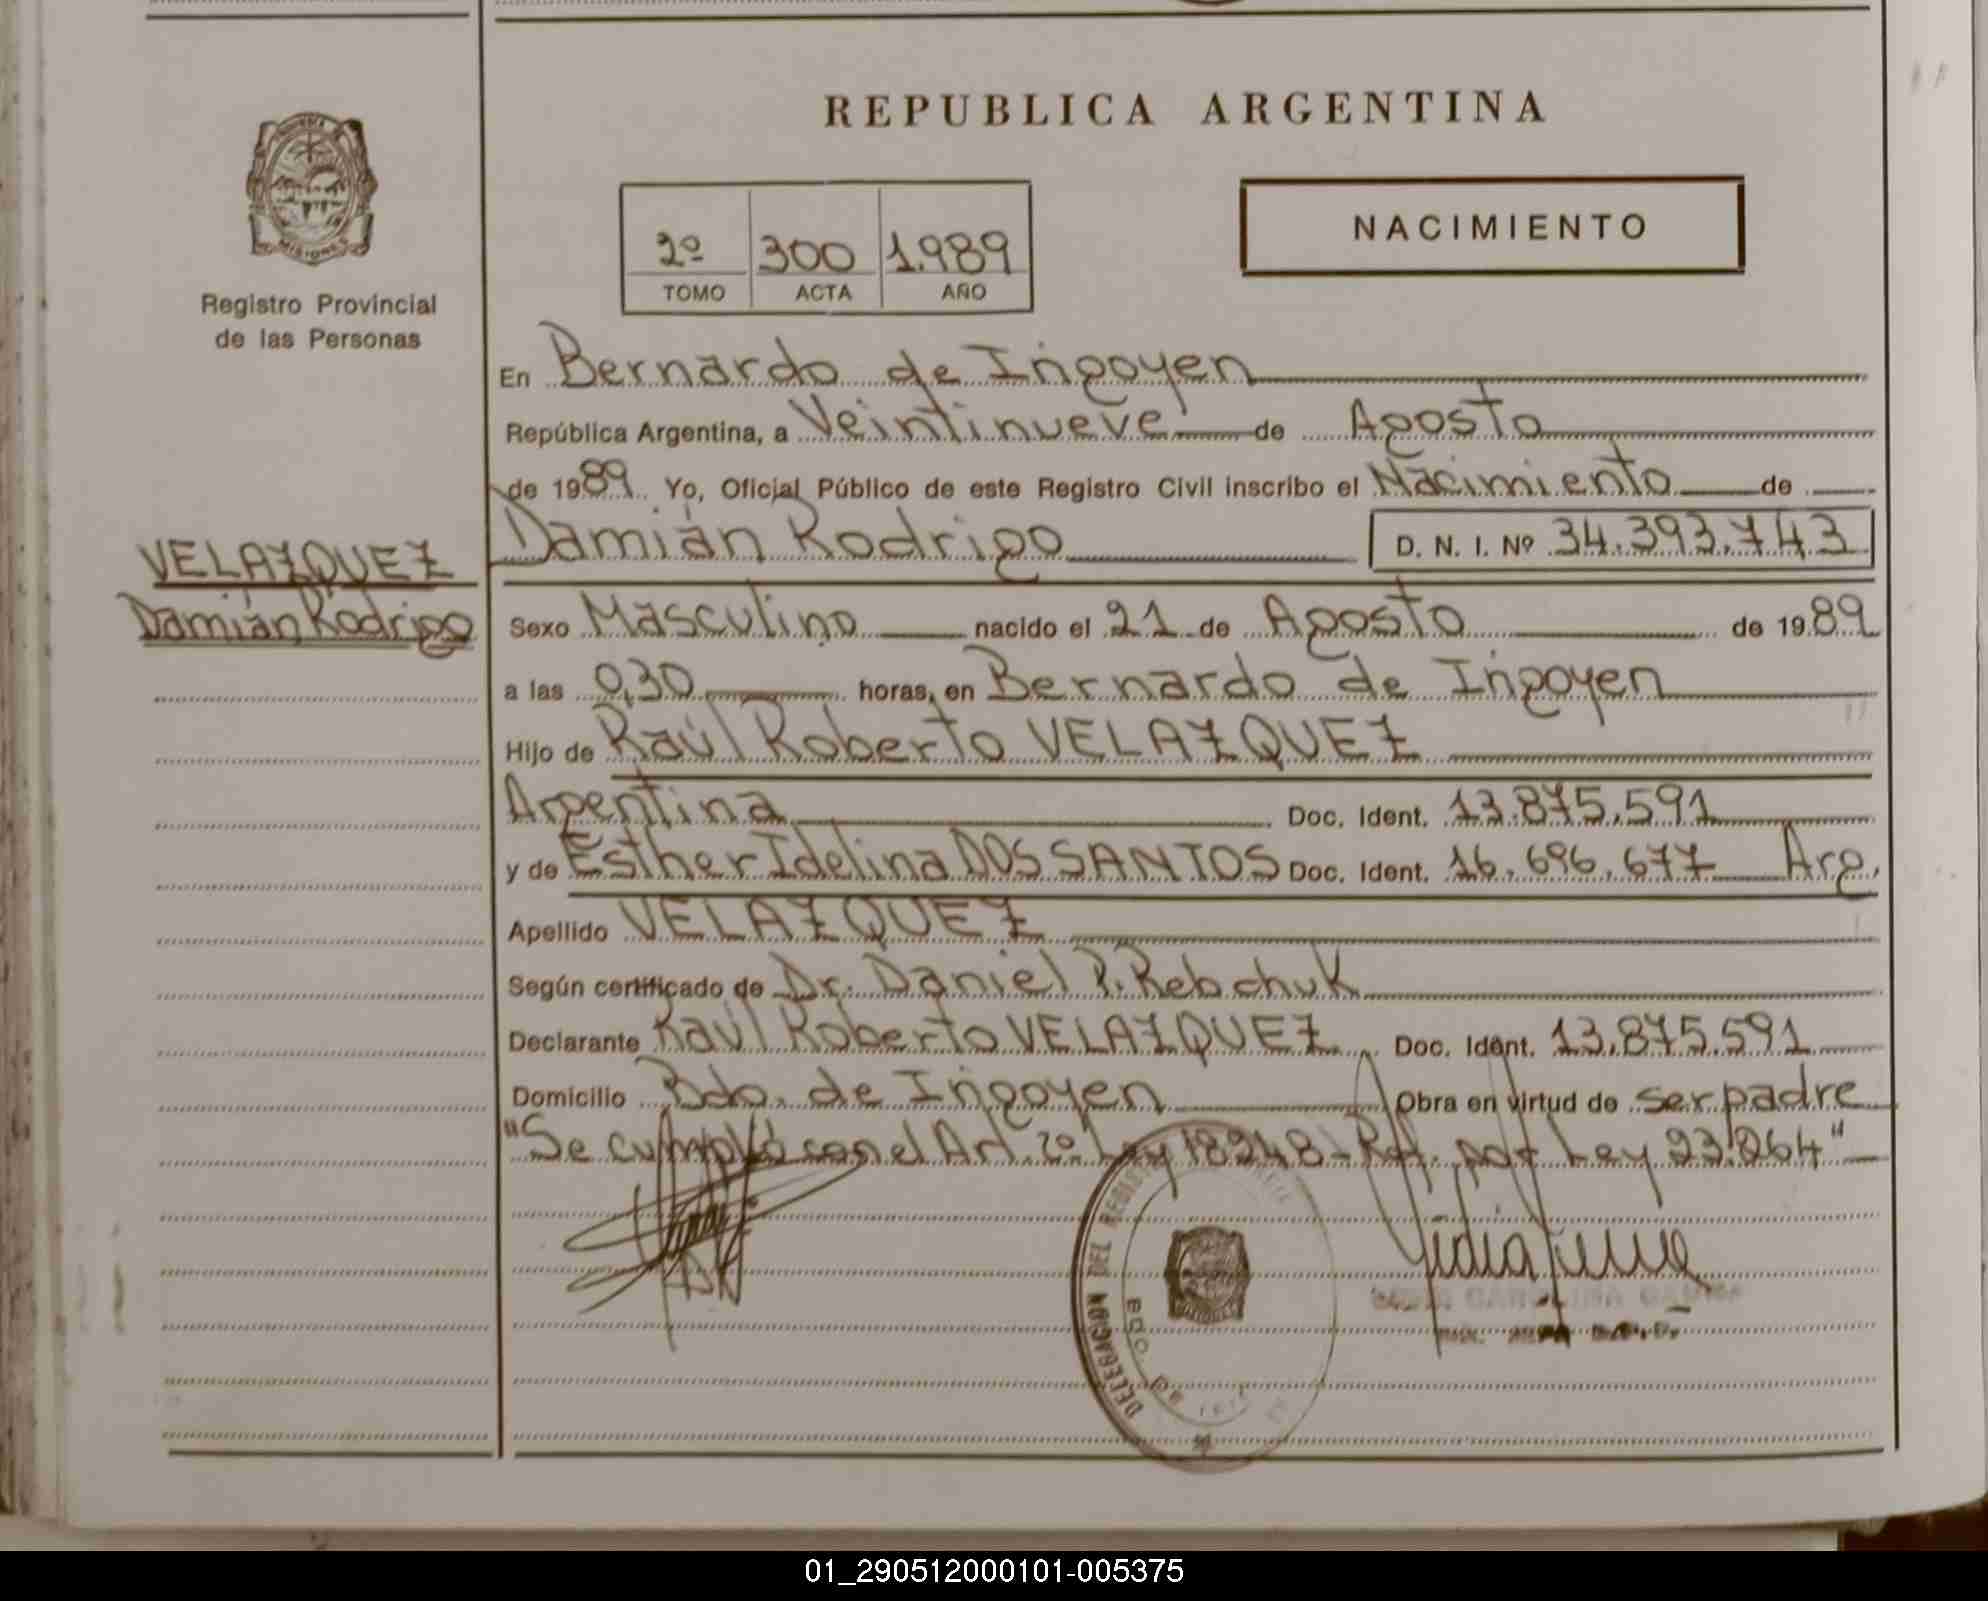 REPUBLICA ARGENTINA
MISIONES
Registro Provincial
de las Personas
2º 300 1.989
TOMO ACTA AÑO
NACIMIENTO
En Bernardo de Irigoyen
República Argentina, a Veintinueve de Agosto
de 1989 Yo, Oficial Público de este Registro Civil inscribo el Nacimiento de
VELAZQUEZ
Damián Rodrigo
Damián Rodrigo D. N. I. Nº 34.393.743
Sexo Masculino nacido el 21 de Agosto de 1989
a las 0,30 horas, en Bernardo de Irigoyen
Hijo de Raúl Roberto VELAZQUEZ
Argentina Doc. Ident. 13.875.591
y de Esther Idelina DOS SANTOS Doc. Ident. 16.696.677 Arg.
Apellido VELAZQUEZ
Según certificado de Dr. Daniel P. Rebchuk
Declarante Raúl Roberto VELAZQUEZ Doc. Idént. 13.875.591
Domicilio Bdo. de Irigoyen Obra en virtud de ser padre
"Se cumplió con el Art. 2º Ley 18248 - Ref. por Ley 23.264"
DELEGACION DEL
BDO. DE
01_290512000101-005375